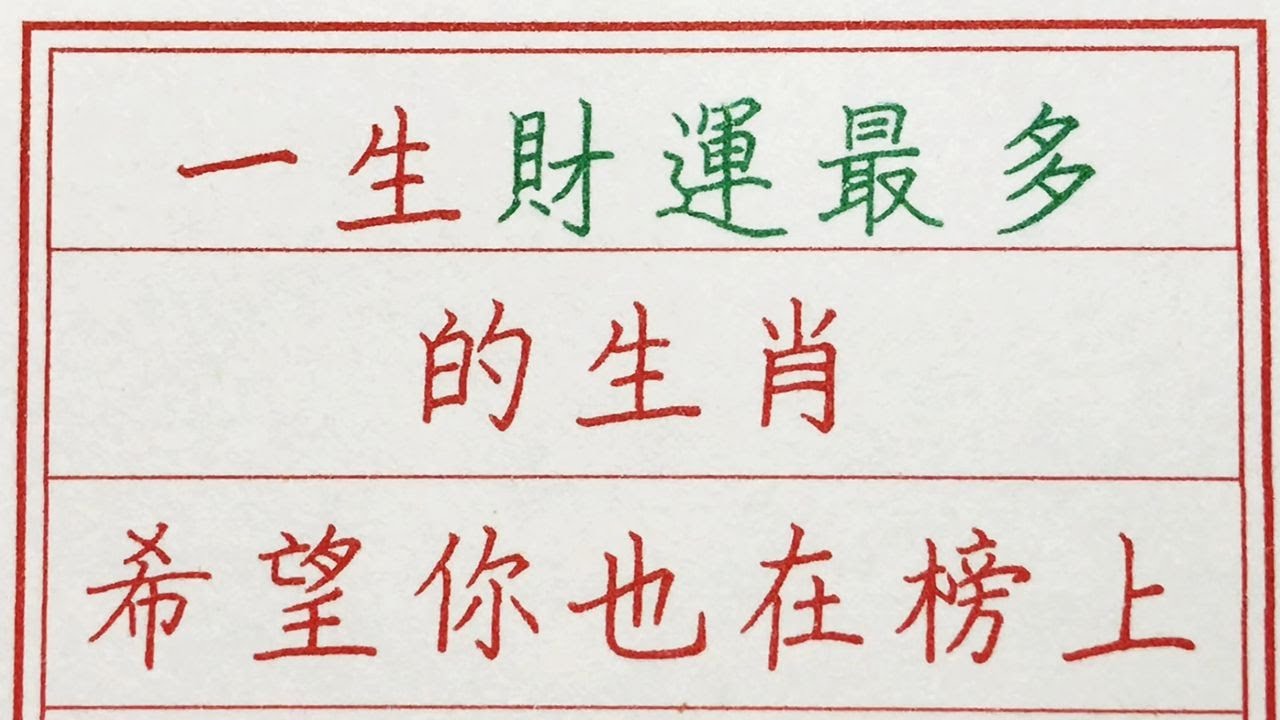 一生財運最多
的生肖
希望你也在榜上